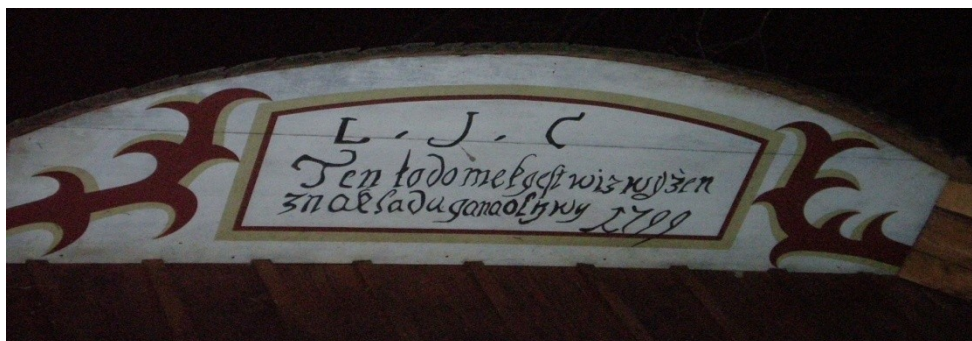 L. J. C
Ten todomekgest wizwyżen
znakladu gana olṅwy 1799